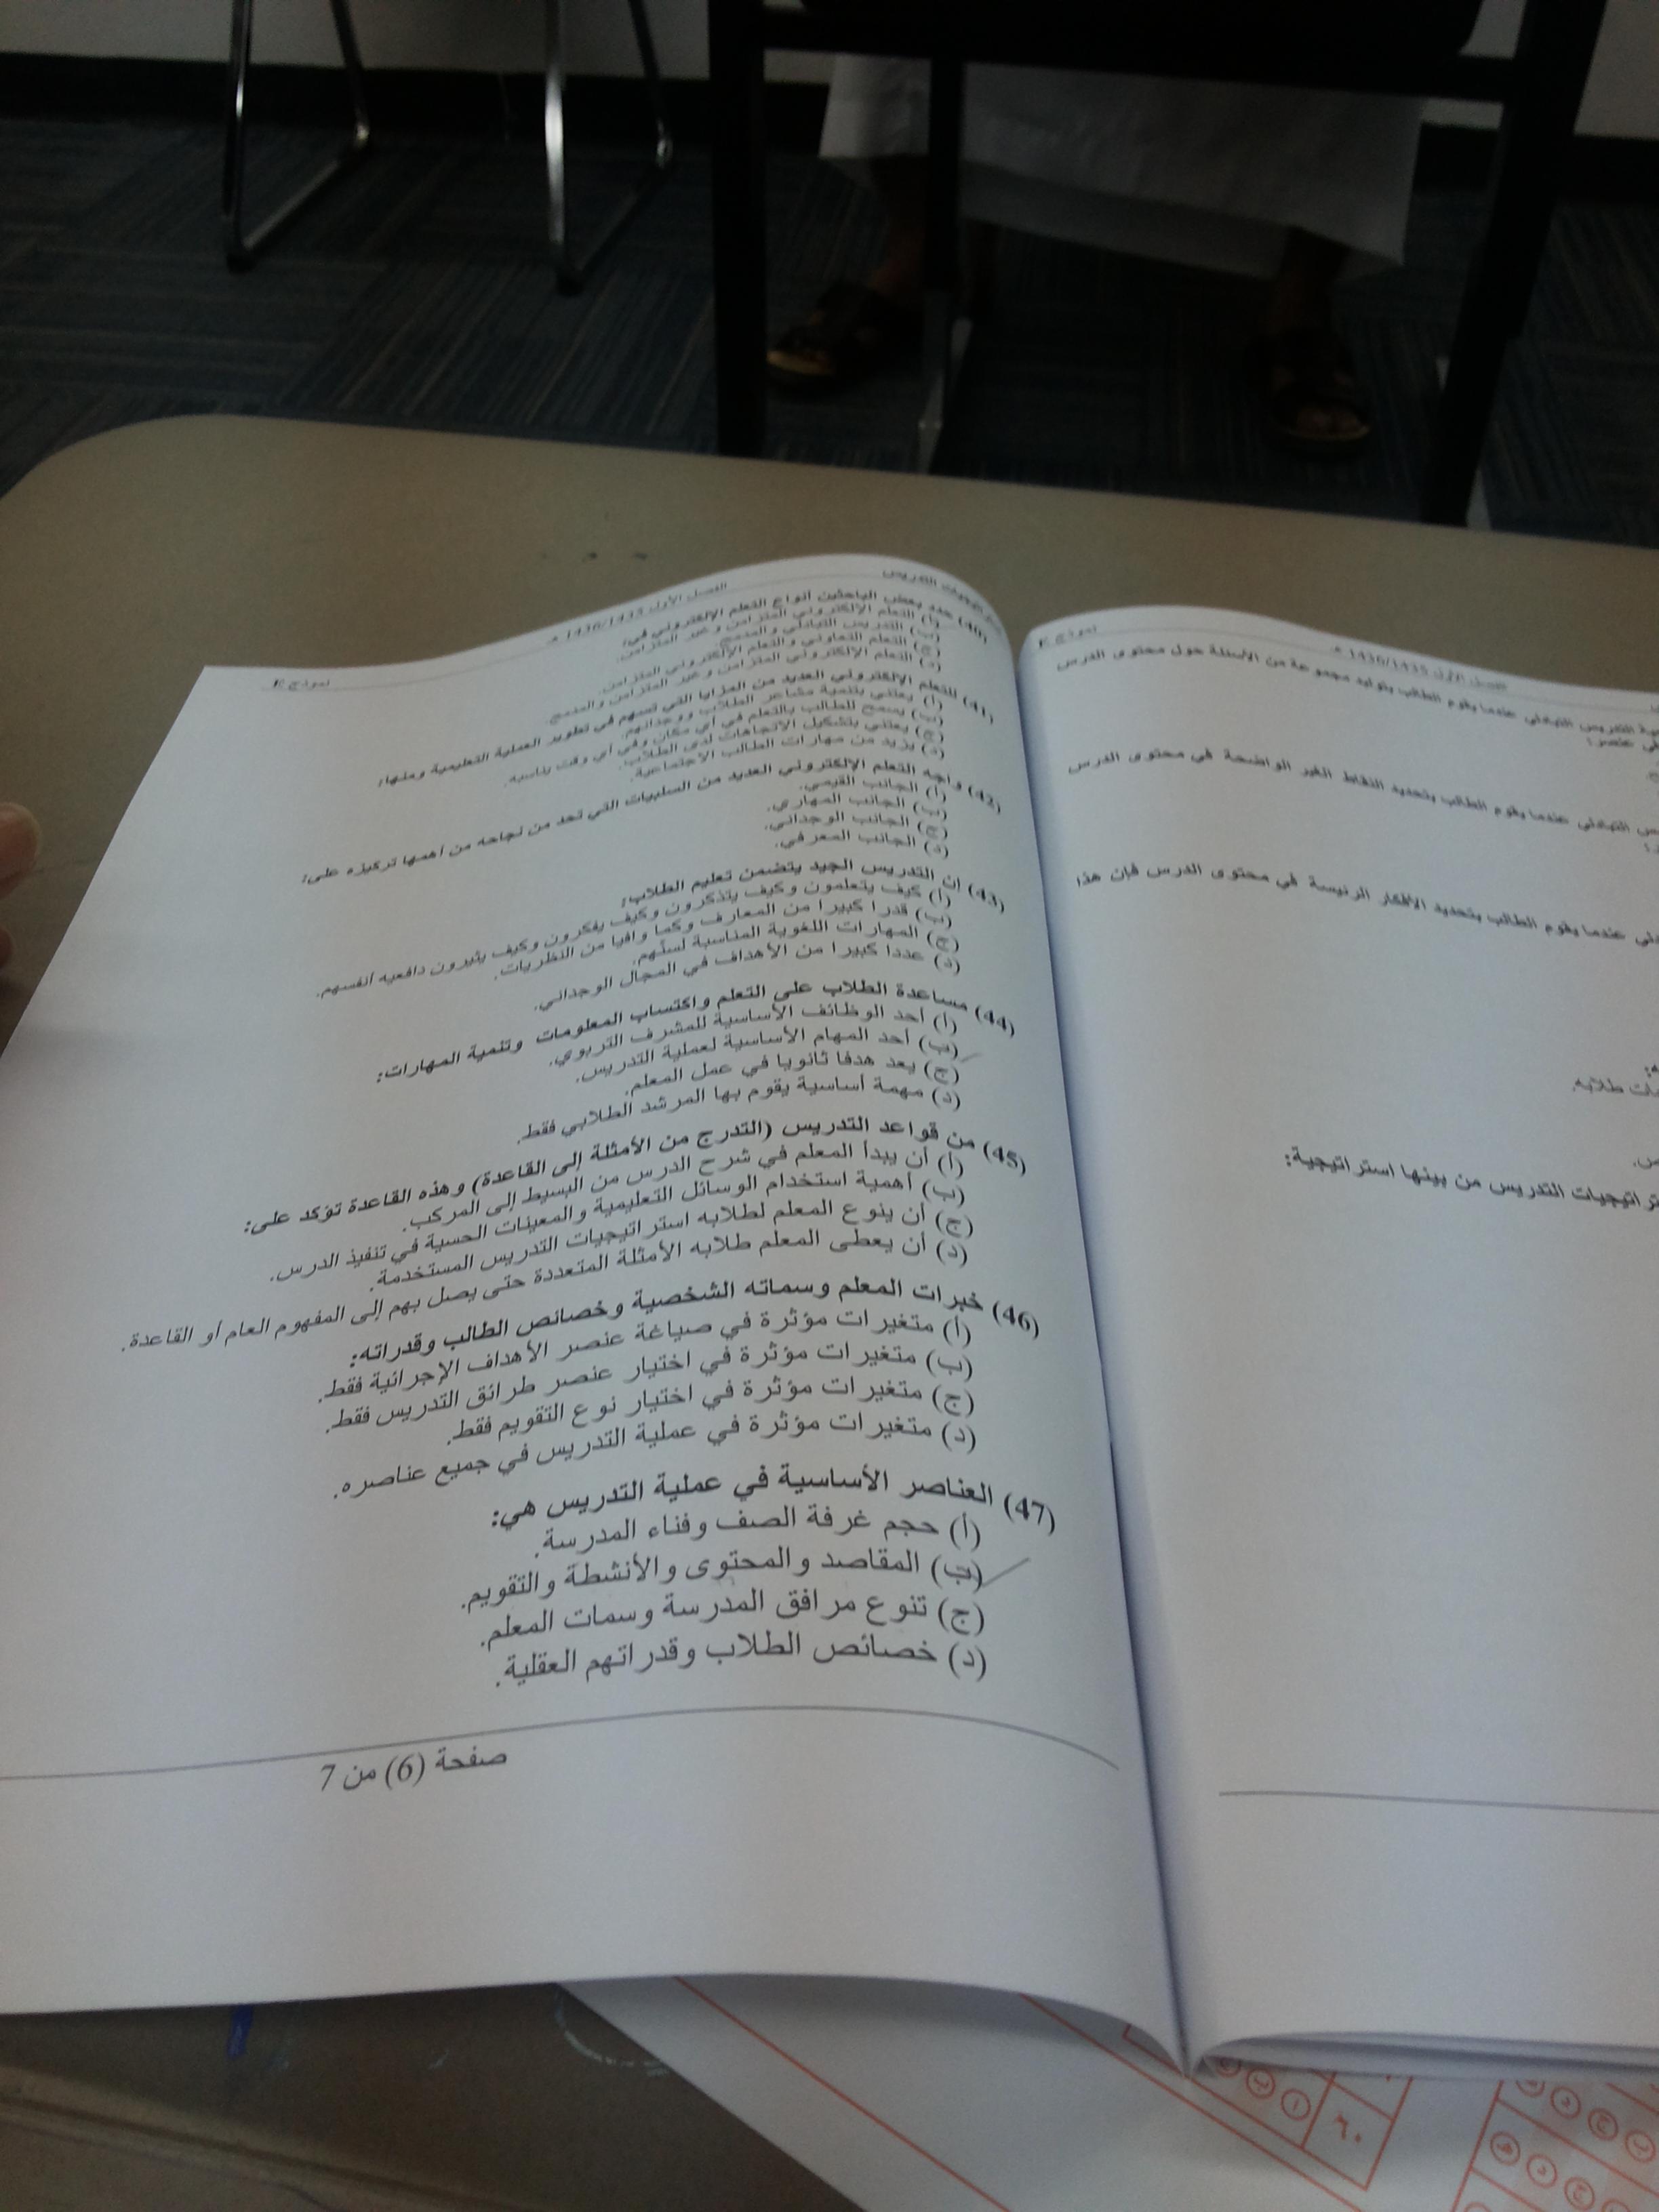 استراتيجيات التدريس
الفصل الأول 1436/1435 هـ
نموذج E
(40) حدد بعض الباحثين أنواع التعلم الإلكتروني في:
(أ) التعلم الإلكتروني المتزامن وغير المتزامن.
(ب) التدريس التبادلي والمدمج.
(ج) التعلم التعاوني والتعلم الإلكتروني المتزامن.
(د) التعلم الإلكتروني المتزامن وغير المتزامن والمدمج.
(41) للتعلم الإلكتروني العديد من المزايا التي تسهم في تطوير العملية التعليمية ومنها:
(أ) يعتني بتنمية مشاعر الطلاب ووجدانهم.
(ب) يسمح للطالب بالتعلم في أي مكان وفي أي وقت يناسبه.
(ج) يعتني بتشكيل الاتجاهات لدى الطلاب.
(د) يزيد من مهارات الطالب الاجتماعية.
(42) واجه التعلم الإلكتروني العديد من السلبيات التي تحد من نجاحه من أهمها تركيزه على:
(أ) الجانب القيمي.
(ب) الجانب المهاري.
(ج) الجانب الوجداني.
(د) الجانب المعرفي.
(43) إن التدريس الجيد يتضمن تعليم الطلاب:
(أ) كيف يتعلمون وكيف يتذكرون وكيف يفكرون وكيف يثيرون دافعيه أنفسهم.
(ب) قدرا كبيرا من المعارف وكما وافيا من النظريات.
(ج) المهارات اللغوية المناسبة لسنهم.
(د) عددا كبيرا من الأهداف في المجال الوجداني.
(44) مساعدة الطلاب على التعلم واكتساب المعلومات وتنمية المهارات:
(أ) أحد الوظائف الأساسية للمشرف التربوي.
(ب) أحد المهام الأساسية لعملية التدريس.
(ج) يعد هدفا ثانويا في عمل المعلم.
(د) مهمة أساسية يقوم بها المرشد الطلابي فقط.
(45) من قواعد التدريس (التدرج من الأمثلة إلى القاعدة) وهذه القاعدة تؤكد على:
(أ) أن يبدأ المعلم في شرح الدرس من البسيط إلى المركب.
(ب) أهمية استخدام الوسائل التعليمية والمعينات الحسية في تنفيذ الدرس.
(ج) أن ينوع المعلم لطلابه استراتيجيات التدريس المستخدمة.
(د) أن يعطى المعلم طلابه الأمثلة المتعددة حتى يصل بهم إلى المفهوم العام أو القاعدة.
(46) خبرات المعلم وسماته الشخصية وخصائص الطالب وقدراته:
(أ) متغيرات مؤثرة في صياغة عنصر الأهداف الإجرائية فقط.
(ب) متغيرات مؤثرة في اختيار عنصر طرائق التدريس فقط.
(ج) متغيرات مؤثرة في اختيار نوع التقويم فقط.
(د) متغيرات مؤثرة في عملية التدريس في جميع عناصره.
(47) العناصر الأساسية في عملية التدريس هي:
(أ) حجم غرفة الصف وفناء المدرسة.
(ب) المقاصد والمحتوى والأنشطة والتقويم.
(ج) تنوع مرافق المدرسة وسمات المعلم.
(د) خصائص الطلاب وقدراتهم العقلية.
صفحة (6) من 7
الفصل الأول 1436/1435 هـ
نموذج E
التدريس التبادلي عندما يقوم الطالب بتوليد مجموعة من الأسئلة حول محتوى الدرس
في عنصر:
التبادلي عندما يقوم الطالب بتحديد النقاط الغير الواضحة في محتوى الدرس
عندما يقوم الطالب بتحديد الأفكار الرئيسة في محتوى الدرس فإن هذا
طلابه.
استراتيجيات التدريس من بينها استراتيجية:
٦٠